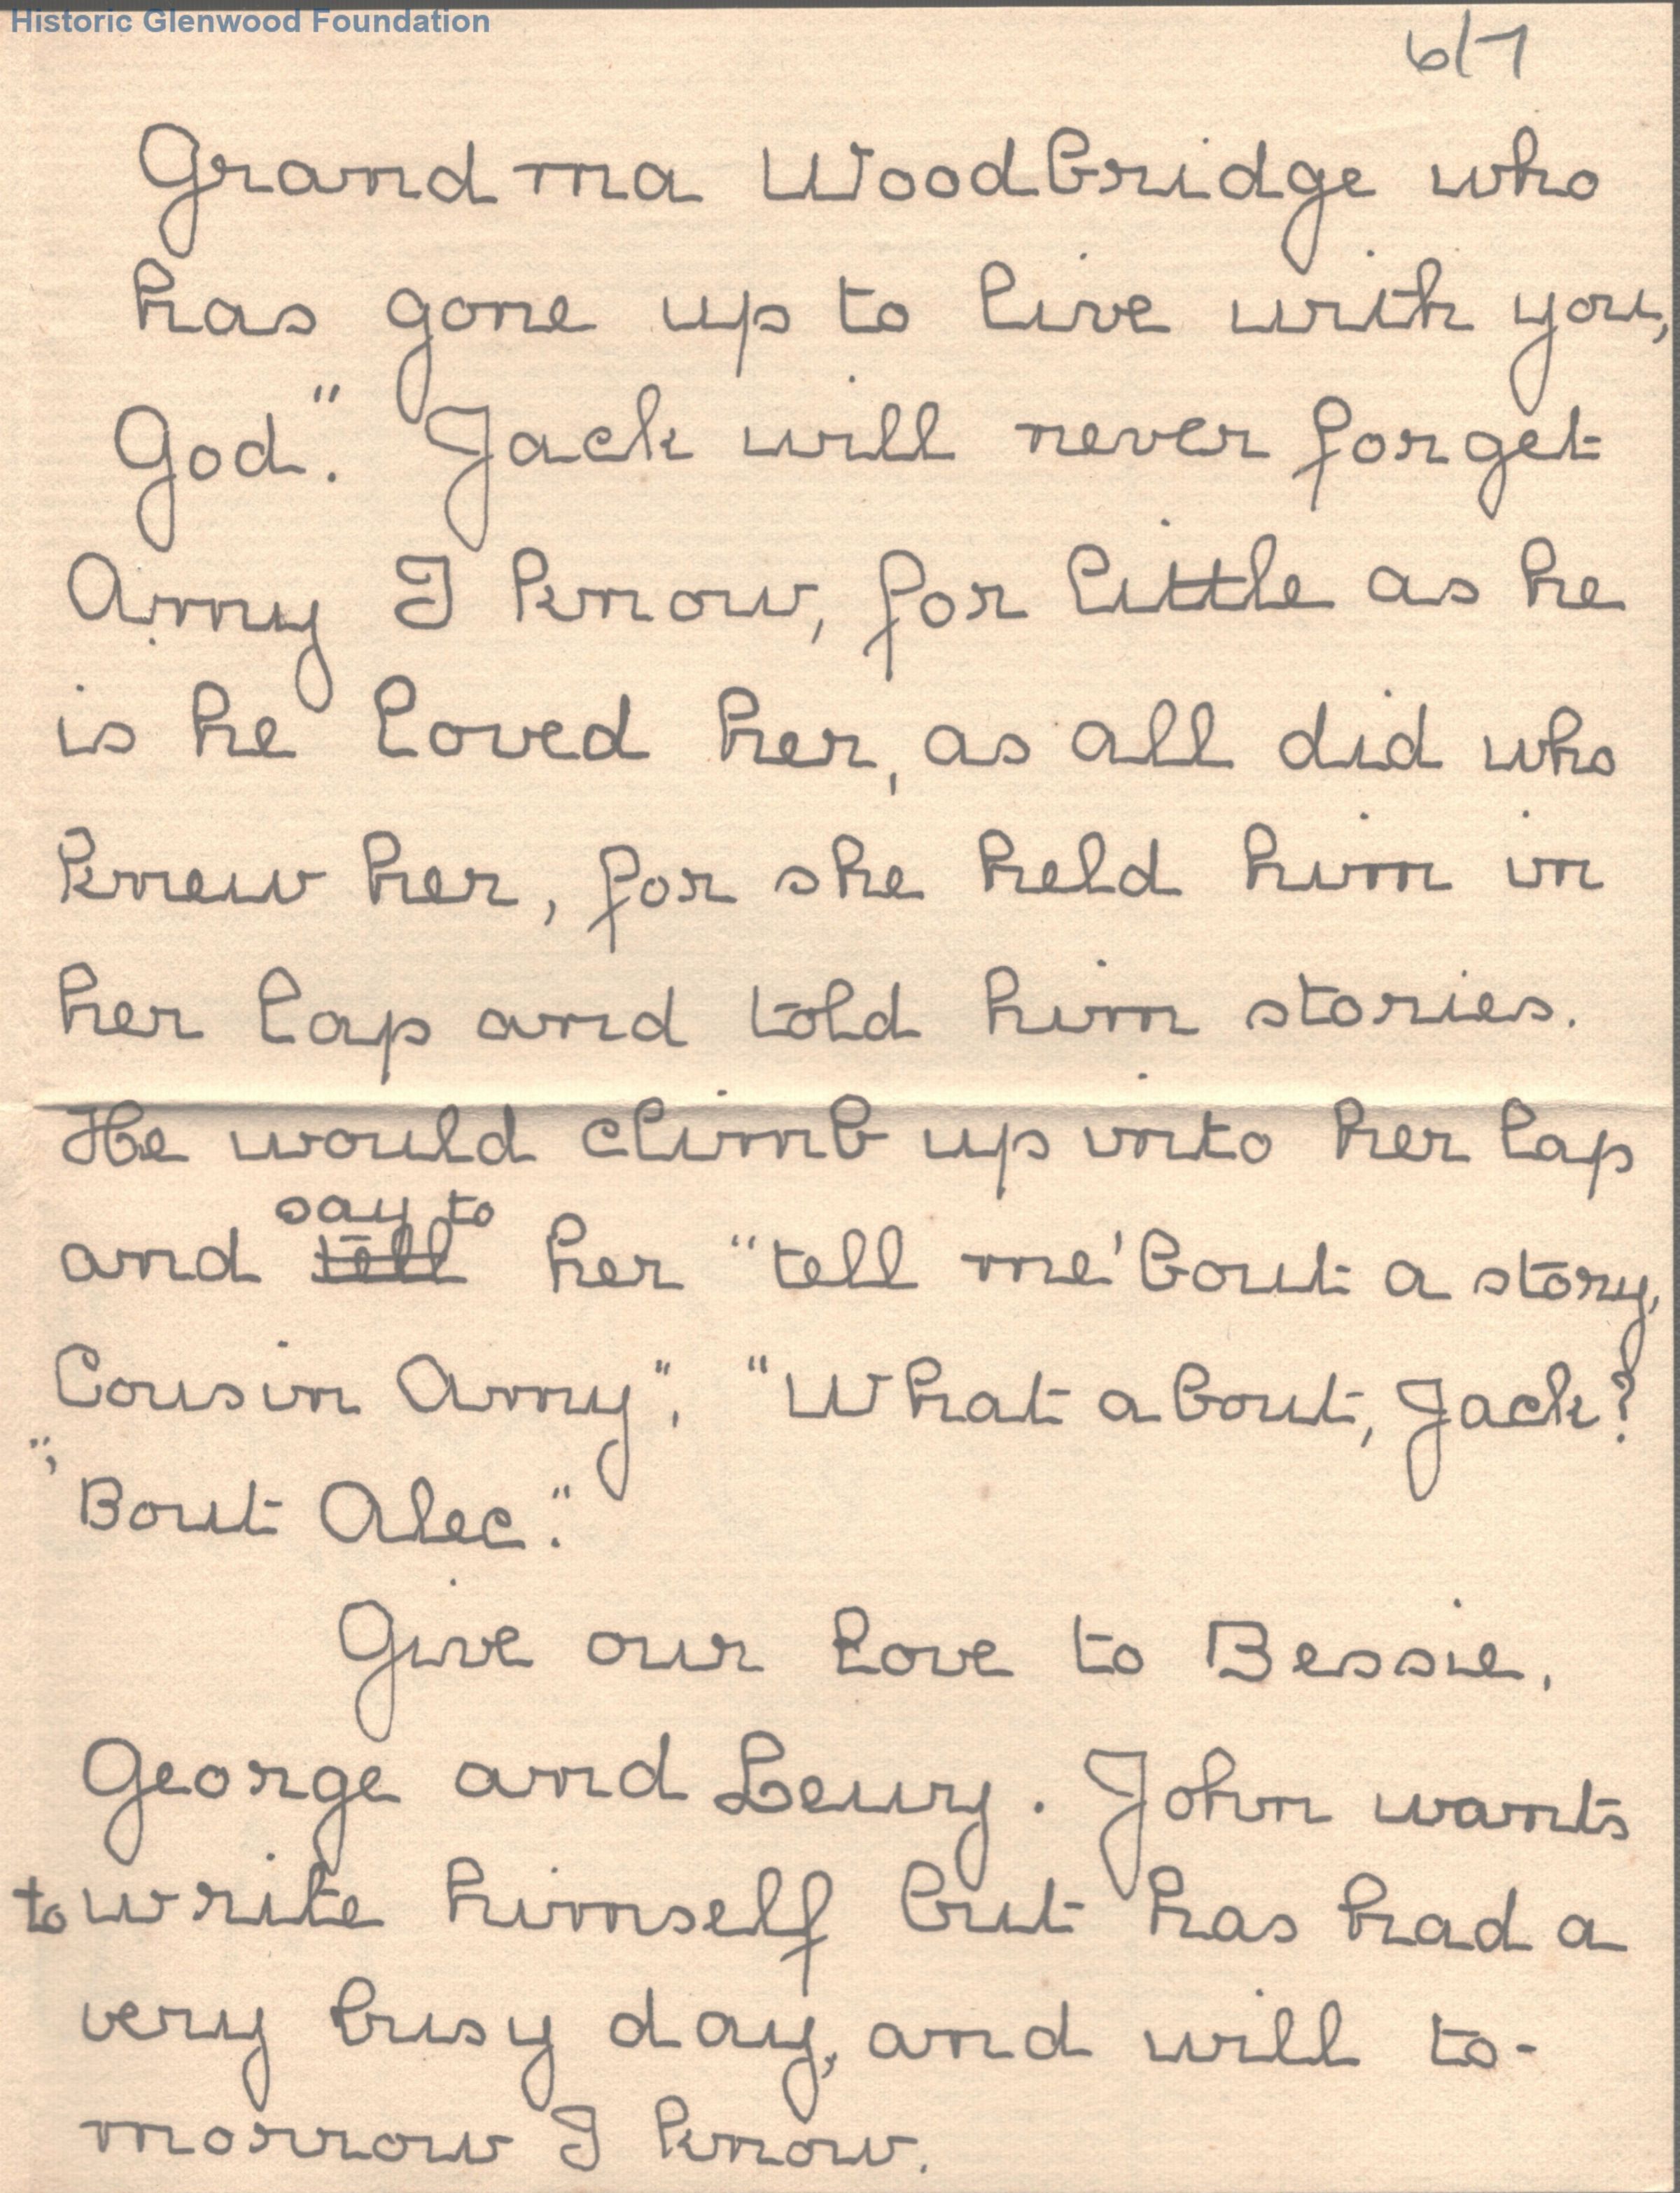 Historic Glenwood Foundation
6/7
Grandma Woodbridge who
has gone up to live with you,
God." Jack will never forget
Amy I know, for little as he
is he loved her, as all did who
knew her, for she held him in
her lap and told him stories.
He would climb up into her lap
say to
and tell her "tell me 'bout a story,
Cousin Amy". "What about, Jack?
"'Bout Alec."
Give our love to Bessie,
George and Lewy. John wants
to write himself but has had a
very busy day, and will to-
morrow I know.